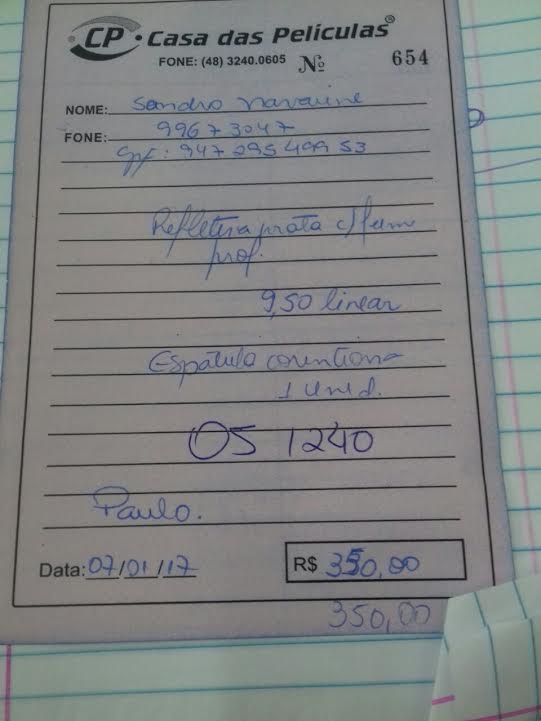 CP Casa das Películas®
FONE: (48) 3240.0605 Nº 654
NOME: Sandro
FONE: 9967 3047
cpf: 947 295 499 53
Refletiva prata c/ fume
prof.
9,50 linear
Espátula
1 unid.
OS 1240
Paulo.
Data: 07/01/17 R$ 350,00
350,00